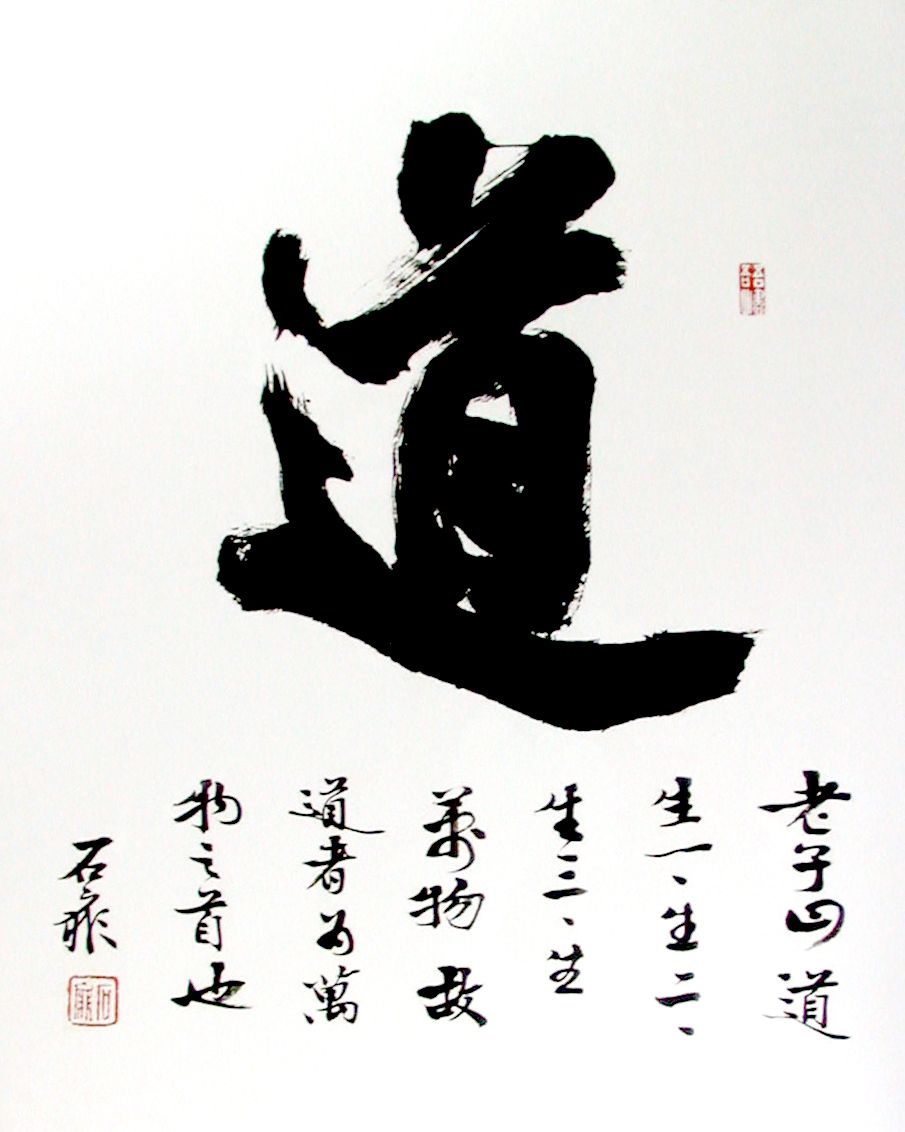 道
老子曰道
生一、生二、
生三、生
萬物故
道者為萬
物之首也
石